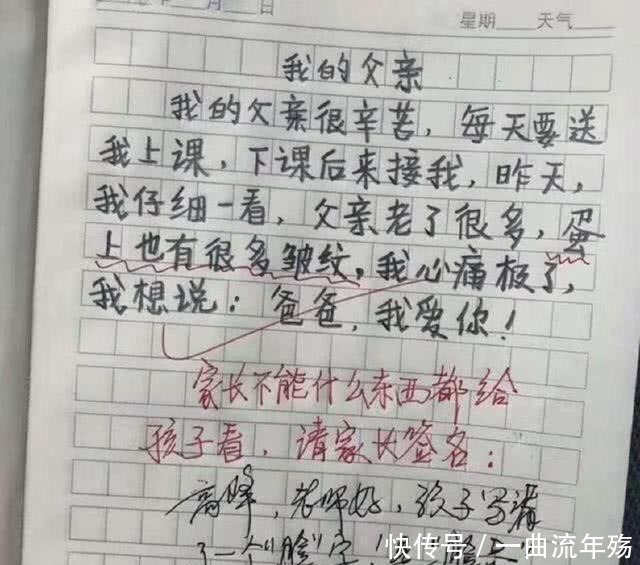 月 日 星期 天气
我的父亲
我的父亲很辛苦，每天要送
我上课，下课后来接我，昨天，
我仔细一看，父亲老了很多，蛋
上也有很多皱纹，我心痛极了，
我想说：爸爸，我爱你！
家长不能什么东西都给
孩子看，请家长签名：
高峰，老师好，孩子写漏
了一个“脸”字
快传号/一曲流年殇